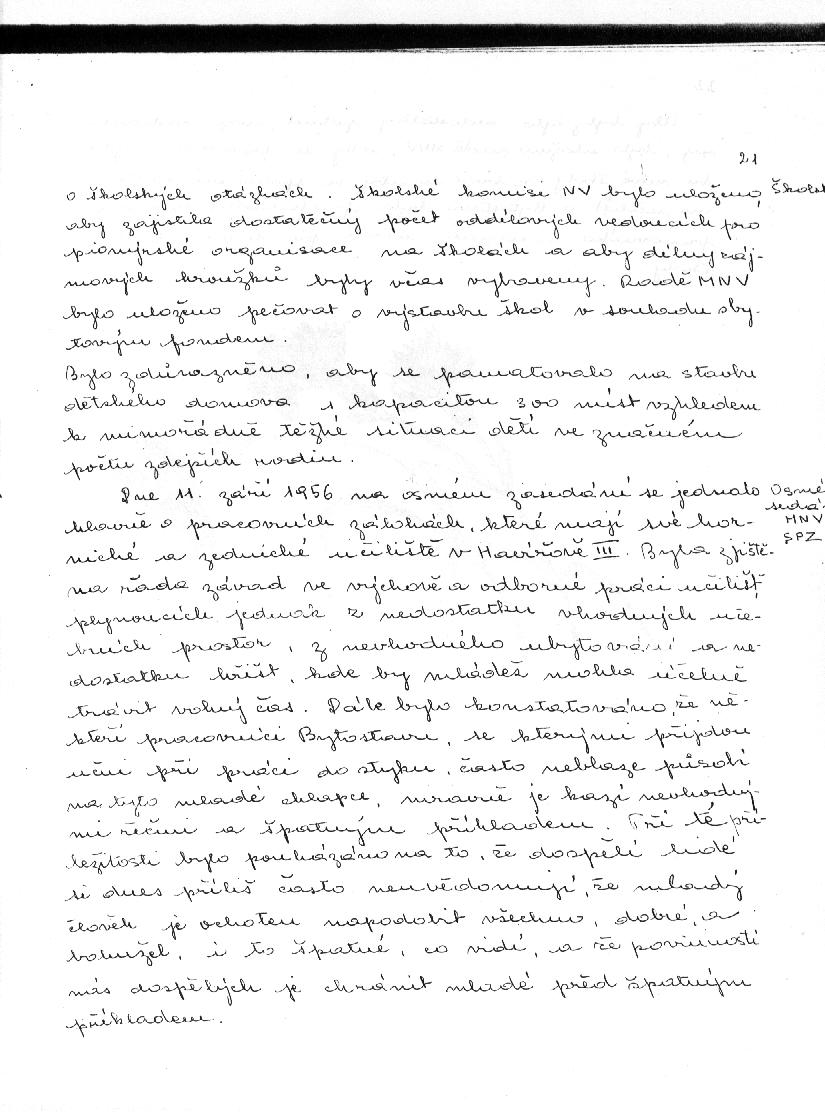 21
o školských otázkách. Školské komisi NV bylo uloženo, 
aby zajistila dostatečný počet oddílových vedoucích pro
pionýrské organisace na školách a aby dílny záj-
mových kroužků byly včas vybaveny. Radě MNV
bylo uloženo pečovat o výstavbu škol v souhadu s by-
tovým fondem.
Bylo zdůrazněno, aby se pamatovalo na stavbu
dětského domova s kapacitou 300 míst vzhledem
k mimořádně těžké situaci dětí ve značném
počtu zdejších rodin.
Dne 11. září 1956 na osmém zasedání se jednalo
hlavně o pracovních zálohách, které mají své hor-
nické a zednické učiliště v Havířově III. Byla zjiště-
na řada závad ve výchově a odborné práci učilišť
plynoucích jednak z nedostatku vhodných uče-
bních prostor, z nevhodného ubytování a ne-
dostatku hřišť, kde by mládež mohla účelně
trávit volný čas. Dále bylo konstatováno, že ně-
kteří pracovníci Bytostavu, se kterými přijdou
učni při práci do styku, často neblaze působí
na tyto mladé chlapce, mravně je kazí nevhodný-
mi řečmi a špatným příkladem. Při té pří-
ležitosti bylo poukázáno na to, že dospělí lidé
si dnes příliš často neuvědomují, že mladý
člověk je ochoten napodobit všechno, dobré, a
bohužel, i to špatné, co vidí, a že povinností
nás dospělých je chránit mladé před špatným
příkladem.
Školsk
Osmé
sedá
MNV
SPZ